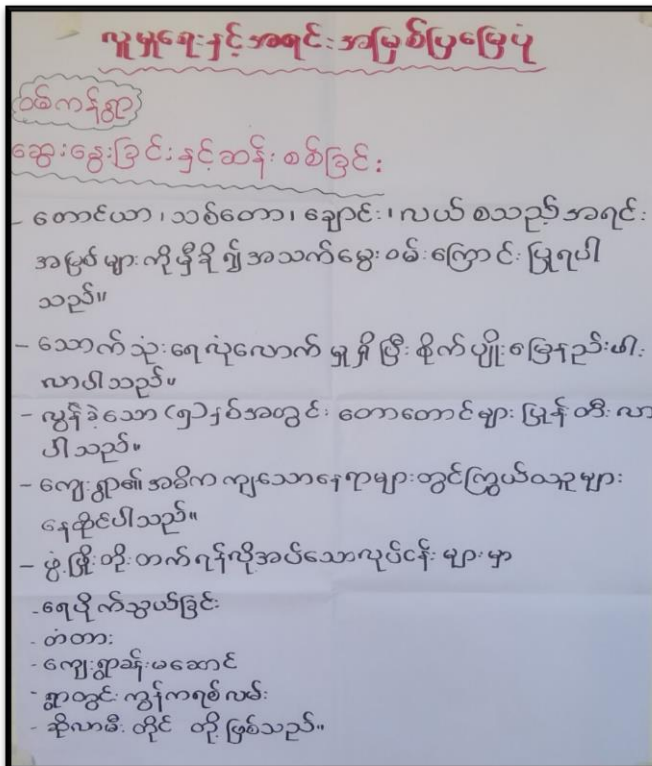 လူမှုရေးနှင့်အရင်းအမြစ်ပြမြေပုံ
ဝမ်ကန်ရွာ
ဆွေးနွေးခြင်းနှင့်ဆန်းစစ်ခြင်း
- တောင်ယာ၊သစ်တော၊ချောင်း၊လယ် စသည့်အရင်း
အမြစ်များကိုမှီခို၍အသက်မွေးဝမ်းကြောင်းပြုရပါ
သည်။
- သောက်သုံးရေလုံလောက်မှုရှိပြီးစိုက်ပျိုးမြေနည်းပါး
လာပါသည်။
- လွန်ခဲ့သော(၅)နှစ်အတွင်းတောတောင်များ ပြုန်းတီးလာ
ပါသည်။
- ကျေးရွာ၏အဓိကကျသောနေရာများတွင်ကြွယ်ဝသူများ
နေထိုင်ပါသည်။
- ဖွံ့ဖြိုးတိုးတက်ရန်လိုအပ်သောလုပ်ငန်းများမှာ
- ရေပိုက်သွယ်ခြင်း
- တံတား
- ကျေးရွာခန်းမဆောင်
- ရွာတွင်းကွန်ကရစ်လမ်း
- ဆိုလာမီးတိုင် တို့ဖြစ်သည်။